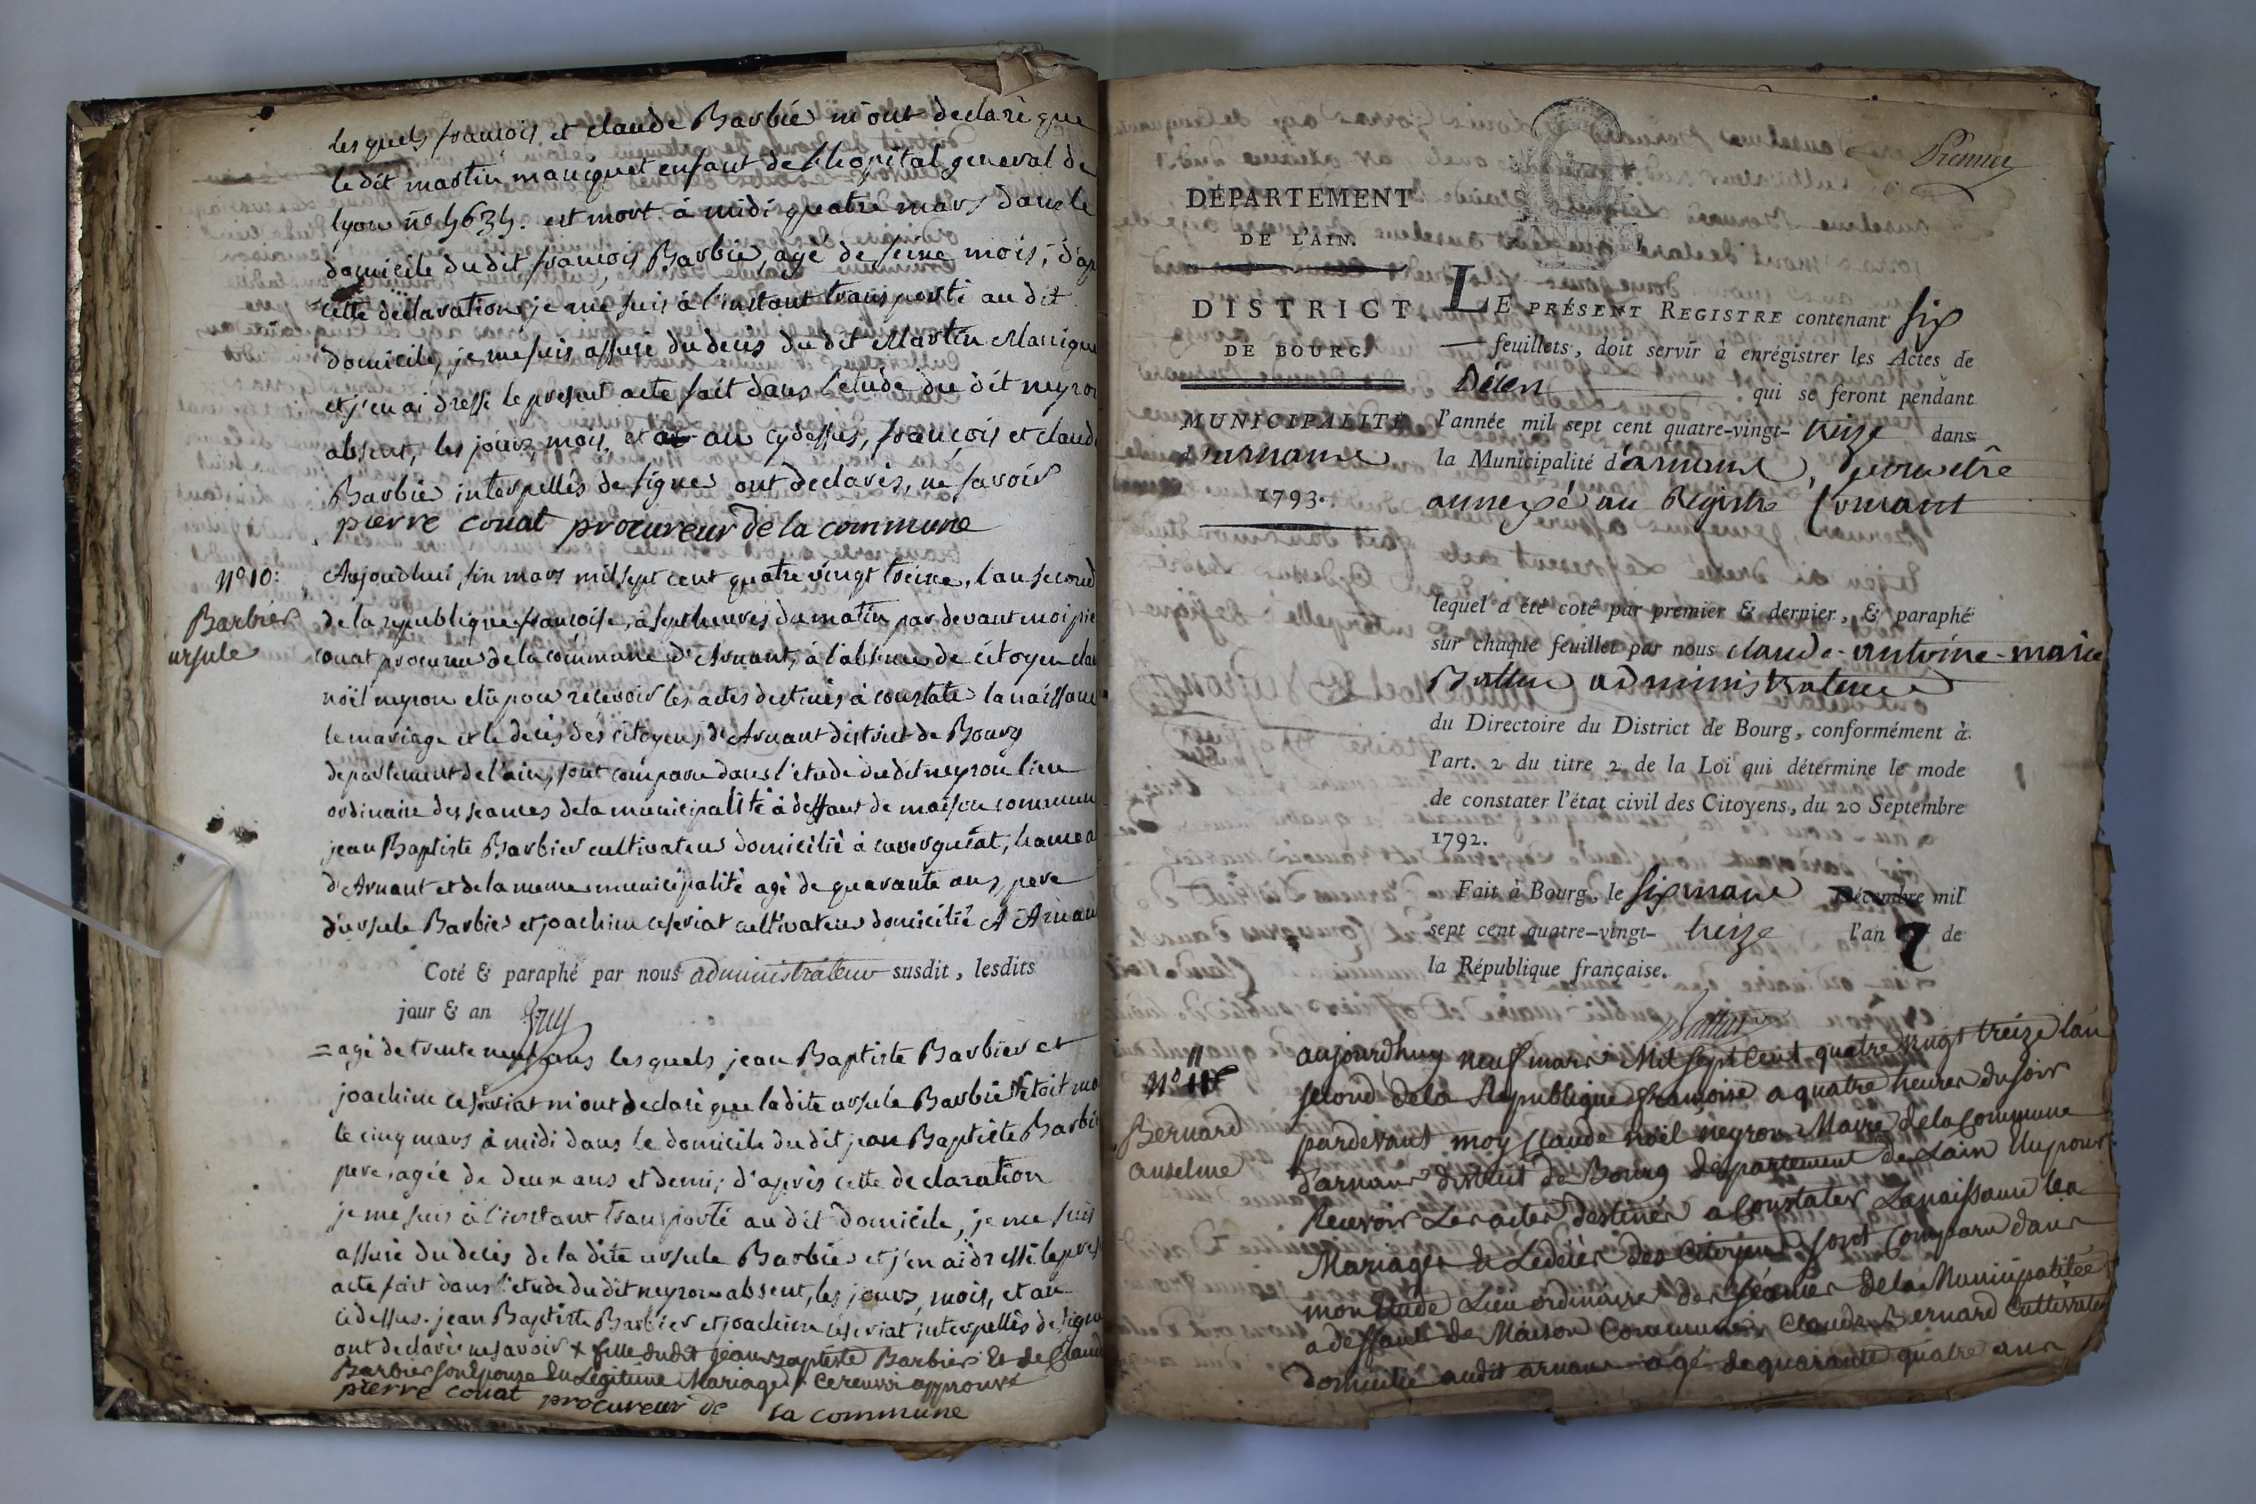 les quels francois et claude Barbié m'ont declaré que
le dit martin manquet enfant de l'hopital general de
lyon no est mort à midi quatre mars dans le
domicile du dit francois Barbié, agé de seize mois, d'ap
cette déclaration je me suis à l'instant transporté au dit
domicile, je me suis assuré du décès du dit Martin
et j'en ai dressé le present acte fait dans l'etude du dit neyron
absent, les jours, mois, et an cydessus, françois et claude
Barbié interpellés de signer ont declarés, ne savoir
pierre couat procureur de la commune
No 10:
Barbier
ursule
Aujoudhui, six mars mil sept cent quatre vingt treize, l'an second
de la republique francoise, à sept heures du matin par devant moi pie
couat procureur de la commune d'Arnant, à l'absence de citoyen cla
noël neyron elû pour recevoir les actes destinés à constater la naissance
le mariage et le décès des citoyens d'Arnant district de Bourg
departement de l'ain, sont comparu dans l'etude du dit neyron lieu
ordinaire des seances de la municipalité à deffaut de maison commune
jean Baptiste Barbier cultivateur domicilié à hamea
d'Arnant et de la meme municipalité agé de quarante ans, pere
d'ursule Barbier et joachim ceseriat cultivateur domicilié A Arnan
Coté & paraphé par nous administrateur susdit, lesdits
jour & an
= agé de trente neuf ans les quels jean Baptiste Barbier et
joachim ceseriat m'ont declaré que la dite ursule Barbié etoit mo
le cinq mars à midi dans le domicile du dit jean Baptiste Barbi
pere, agée de deux ans et demi, d'après cette declaration
je me suis à l'instant transporté au dit domicile, je me suis
assuré du decès de la dite ursule Barbier et j'en ai dressé le pres
acte fait dans l'etude du dit neyron absent, les jours, mois, et an
cidessus. jean Baptiste Barbier et joachim ceseriat interpellés de signer
ont declaré ne savoir x fille dudit jean baptiste Barbier Et de Claud
Barbier son Epouse En Légitime Mariage, ce renvoi approuvé
pierre couat procureur de la commune
Premier
DÉPARTEMENT
DE L'AIN.
DISTRICT
DE BOURG.
MUNICIPALITÉ
d'arnans
1793.
LE PRÉSENT REGISTRE contenant six
feuillets, doit servir à enrégistrer les Actes de
Décès qui se feront pendant
l'année mil sept cent quatre-vingt- treize dans
la Municipalité d'arnans, pour être
annexé au Registre Courant
lequel a été coté par premier & dernier, & paraphé
sur chaque feuillet par nous claude-antoine-marie
administrateur
du Directoire du District de Bourg, conformément à
l'art. 2 du titre 2 de la Loi qui détermine le mode
de constater l'état civil des Citoyens, du 20 Septembre
1792.
Fait à Bourg, le six mars Décembre mil
sept cent quatre-vingt- treize l'an 2 de
la République française.
11
No
Bernard
anselme
aujourdhuy neuf mars Mil sept Cent quatre vingt treize l'an
second de la Republique francoise a quatre heures du soir
pardevant moy Claude noël neyron Maire de la Commune
d'arnans district de Bourg departement de Lain Elu pour
Recevoir Les actes destinés a Constater La naissance les
Mariages & Le décès des Citoyens sont Comparu dans
mon Etude Lieu ordinaire des séances de la Municipalitée
a deffaut de Maison Commune Claude Bernard Cultivateur
domicilié audit arnans agé de quarante quatre ans